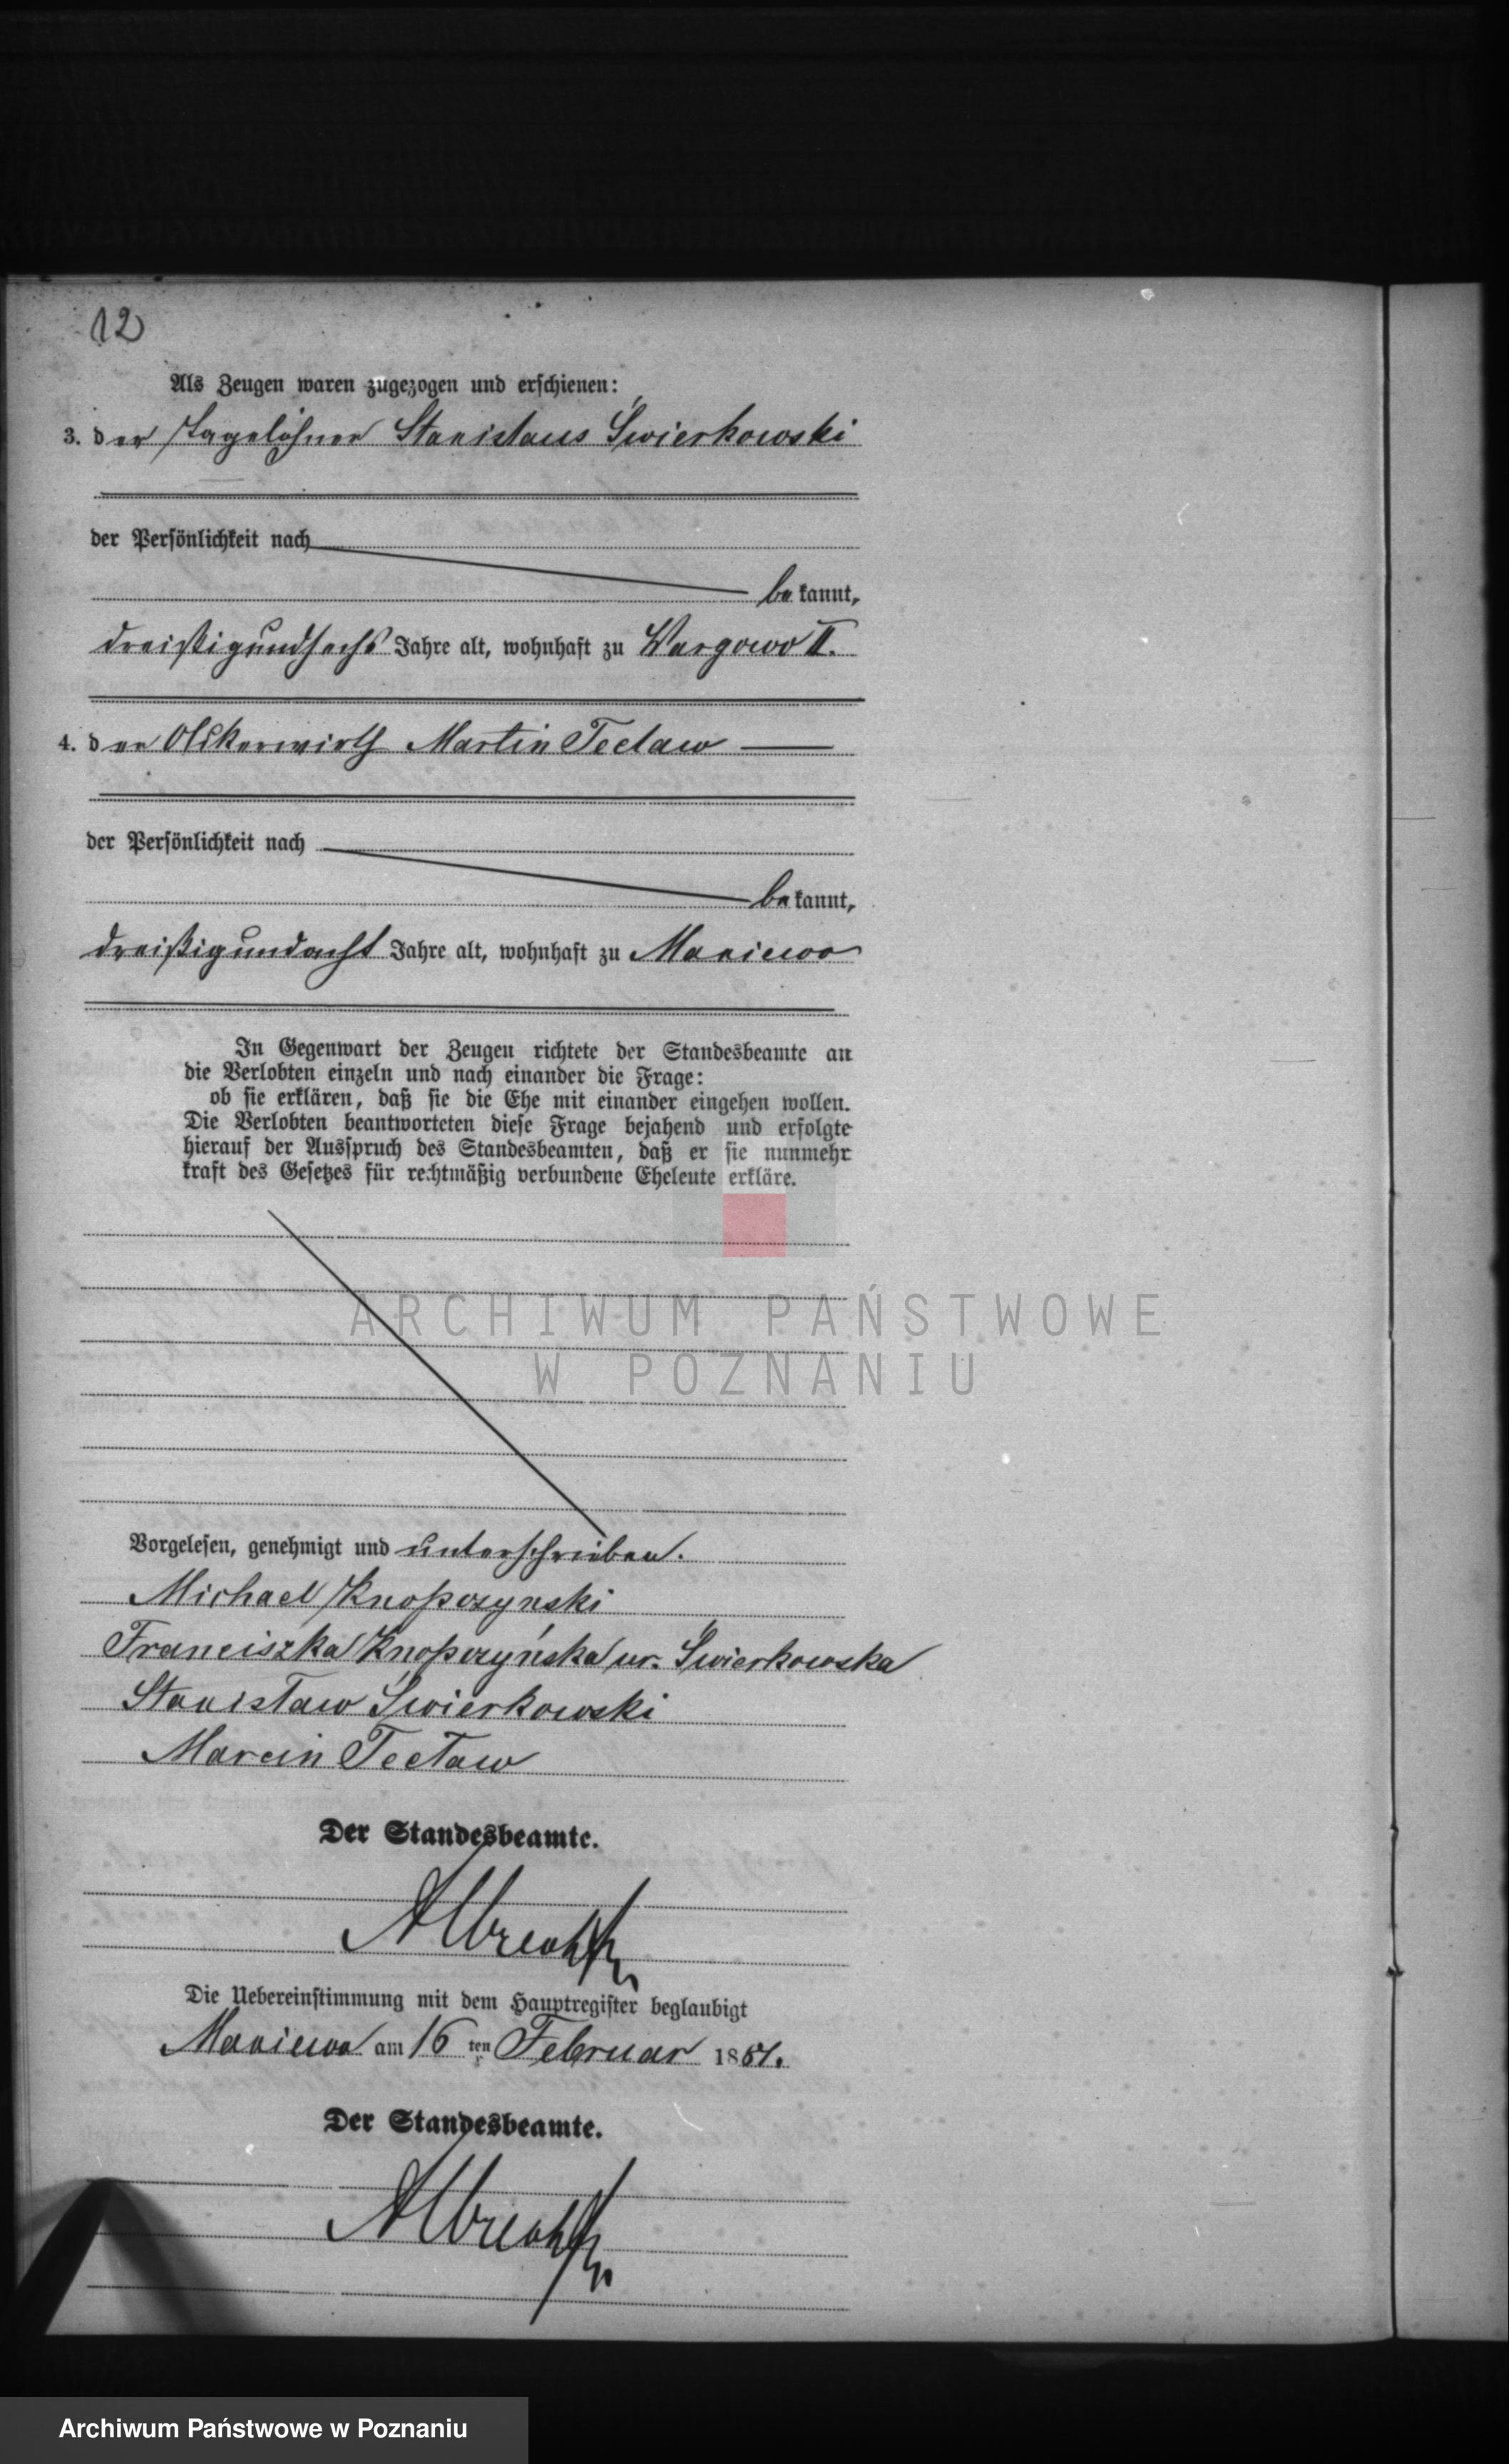 12
Als Zeugen waren zugezogen und erschienen:
3. der Tagelöhner Stanislaus Świerkowski
der Persönlichkeit nach
bekannt,
dreißigundsechs Jahre alt, wohnhaft zu Wargowo II.
4. der Ackerwirth Martin Teclaw
der Persönlichkeit nach
bekannt,
dreißigundacht Jahre alt, wohnhaft zu Maniewo
In Gegenwart der Zeugen richtete der Standesbeamte an
die Verlobten einzeln und nach einander die Frage:
ob sie erklären, daß sie die Ehe mit einander eingehen wollen.
Die Verlobten beantworteten diese Frage bejahend und erfolgte
hierauf der Ausspruch des Standesbeamten, daß er sie nunmehr
kraft des Gesetzes für rechtmäßig verbundene Eheleute erkläre.
ARCHIWUM PAŃSTWOWE
W POZNANIU
Vorgelesen, genehmigt und unterschrieben.
Michael Knopczynski
Franciszka Knopczyńska ur. Świerkowska
Stanisław Świerkowski
Marcin Tecław
Der Standesbeamte.
Albrecht
Die Uebereinstimmung mit dem Hauptregister beglaubigt
Maniewo am 16ten Februar 18
Der Standesbeamte.
Albrecht
Archiwum Państwowe w Poznaniu